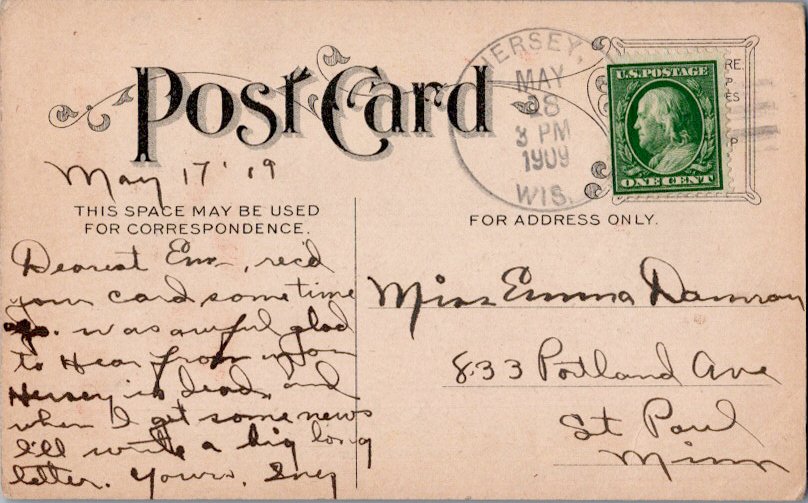 Post Card
HERSEY,
MAY
28
3 PM
1909
WIS.
U.S. POSTAGE
ONE CENT
RE.
P
ES
P
May 17 '19
THIS SPACE MAY BE USED
FOR CORRESPONDENCE.
FOR ADDRESS ONLY.
Dearest Em, rec'd
your card some time
ago. was awful glad
to Hear from you
Hersey is dead, and
when I get some news
I'll write a big long
letter. Yours,
Miss Emma
833 Portland Ave
St Paul
Minn